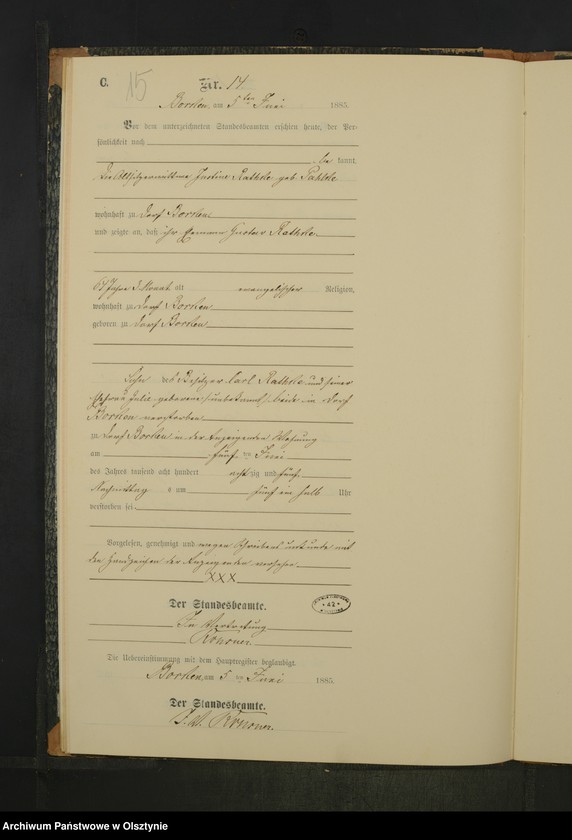 C. 15 Nr. 14
Borken, am 5ten Juni 1885.
Vor dem unterzeichneten Standesbeamten erschien heute, der Per-
sönlichkeit nach
be kannt,
die Altsitzerwittwe Justine Rathke geb.
wohnhaft zu Dorf Borken
und zeigte an, daß ihr Ehemann Gustav Rathke
Jahre Monat alt evangelischer Religion,
wohnhaft zu Dorf Borken
geboren zu Dorf Borken
Sohn des Besitzer Carl Rathke und seiner
Ehefrau Julie geborene (unbekannt) beide in Dorf
Borken verstorben
zu Dorf Borken in der Anzeigenden Wohnung
am fünf ten Juni
des Jahres tausend acht hundert acht zig und fünf
Nachmittag s um fünf ein halb Uhr
verstorben sei.
Vorgelesen, genehmigt und wegen Schreibens unkunde mit
den Handzeichen der Anzeigenden versehen
XXX
Der Standesbeamte.
In Vertretung
Die Uebereinstimmung mit dem Hauptregister beglaubigt.
Borken, am 5 ten Juni 1885.
Der Standesbeamte.
I. V.
Archiwum Państwowe w Olsztynie